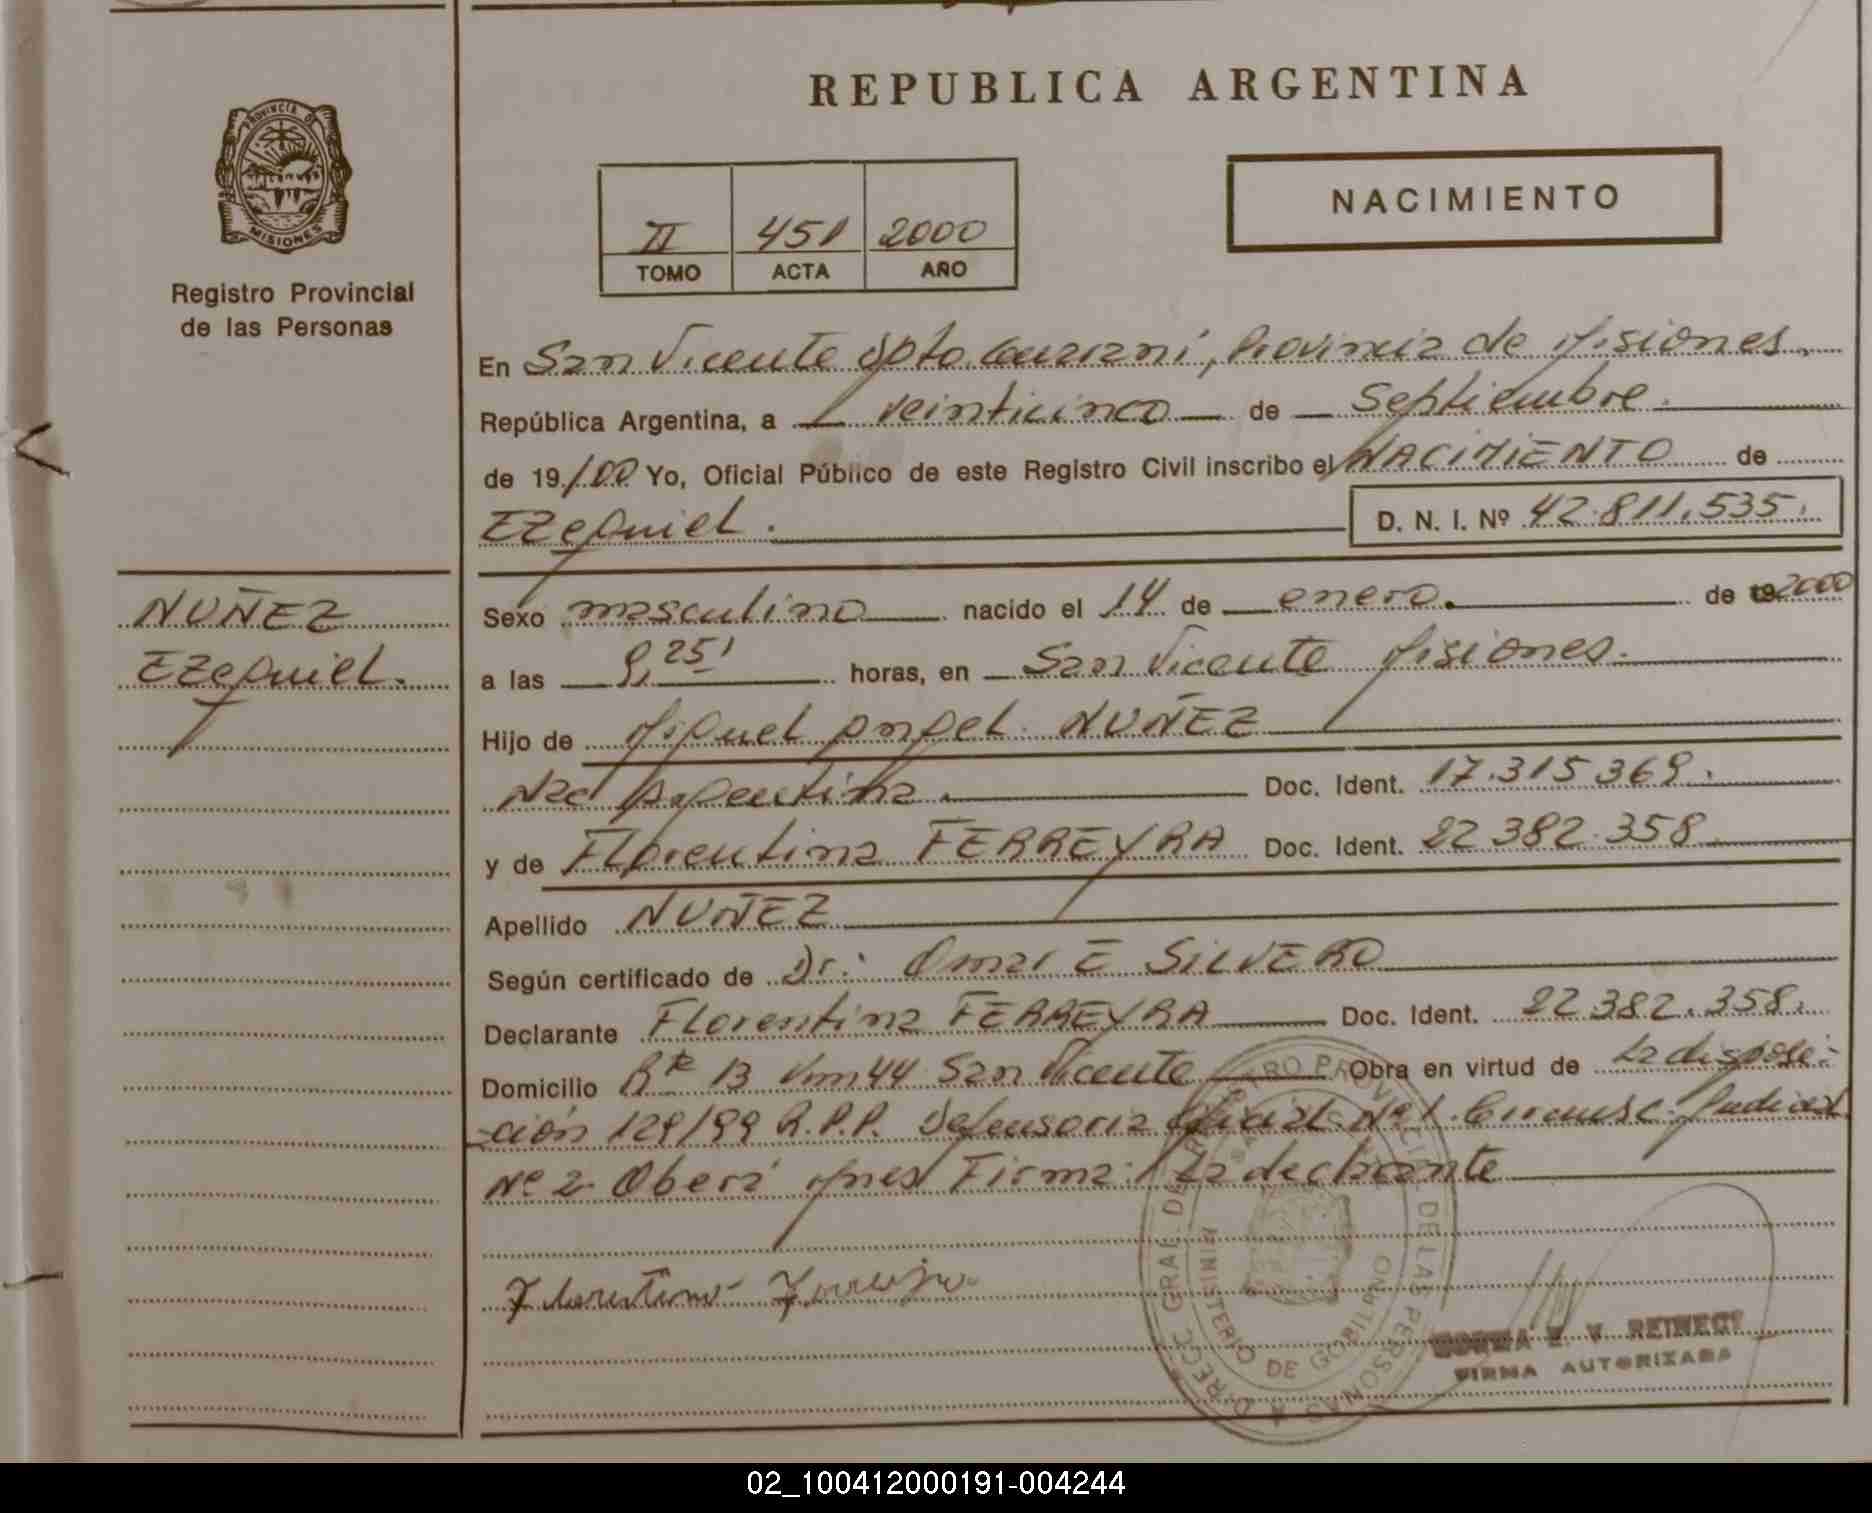 REPUBLICA ARGENTINA
PROVINCIA DE
MISIONES
Registro Provincial
de las Personas
NACIMIENTO
II 451 2000
TOMO ACTA AÑO
En San Vicente Dpto. Guaraní, Provincia de Misiones.
República Argentina, a veinticinco de Septiembre
de 19/00 Yo, Oficial Público de este Registro Civil inscribo el NACIMIENTO de
Ezequiel. D. N. I. Nº 42.811.535.
NUÑEZ
Ezequiel.
Sexo masculino nacido el 14 de enero. de 2000
a las 9,25' horas, en San Vicente Misiones.
Hijo de Miguel Angel NUÑEZ
Nac Argentina. Doc. Ident. 17.315.369.
y de Florentina FERREYRA Doc. Ident. 22.382.358.
Apellido NUÑEZ
Según certificado de Dr. Omar E SILVERO
Declarante Florentina FERREYRA Doc. Ident. 22.382.358.
Domicilio Rta 13 Km 44 San Vicente Obra en virtud de la disposi-
ción 129/99 R.P.P. Defensoria Oficial Nº 1. Circunsc. Judicial
Nº 2 Oberá Mnes Firma: la declarante
DIRECC. GRAL. DEL REGISTRO PROVINCIAL DE LAS PERSONAS
MINISTERIO DE GOBIERNO
E. V. REINECK
FIRMA AUTORIZADA
02_100412000191-004244